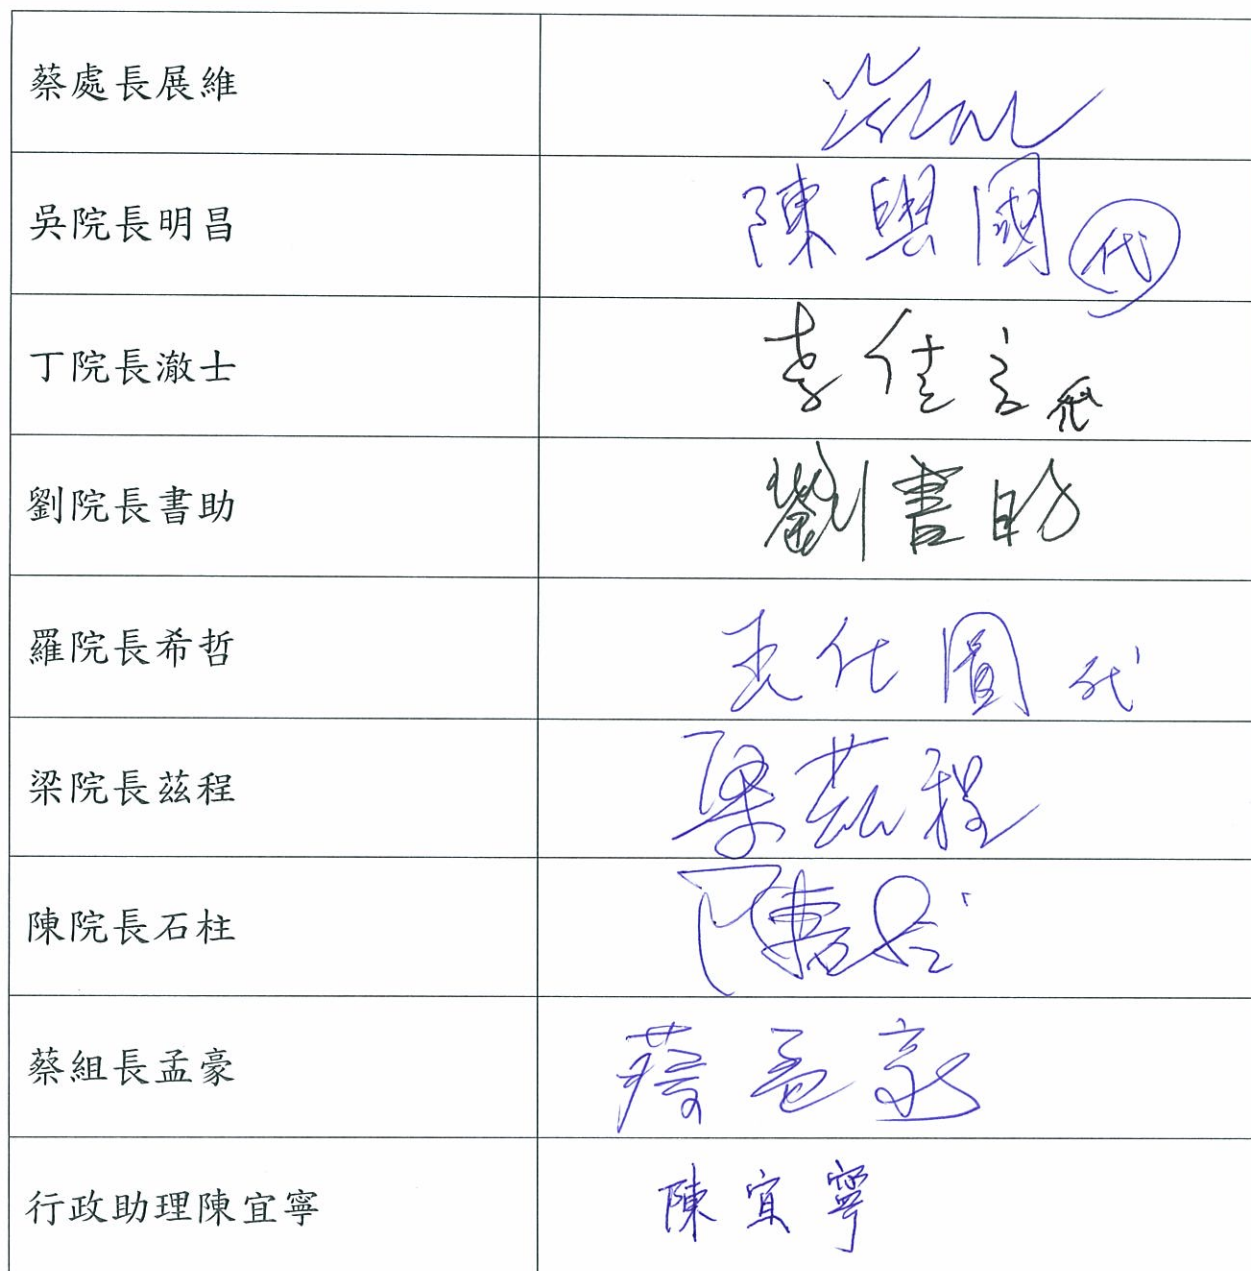 蔡處長展維
吳院長明昌 陳與國 代
丁院長澈士 李佳言 代
劉院長書助 劉書助
羅院長希哲 王仕圖 代
梁院長茲程 梁茲程
陳院長石柱 陳石柱
蔡組長孟豪 蔡孟豪
行政助理陳宜寧 陳宜寧